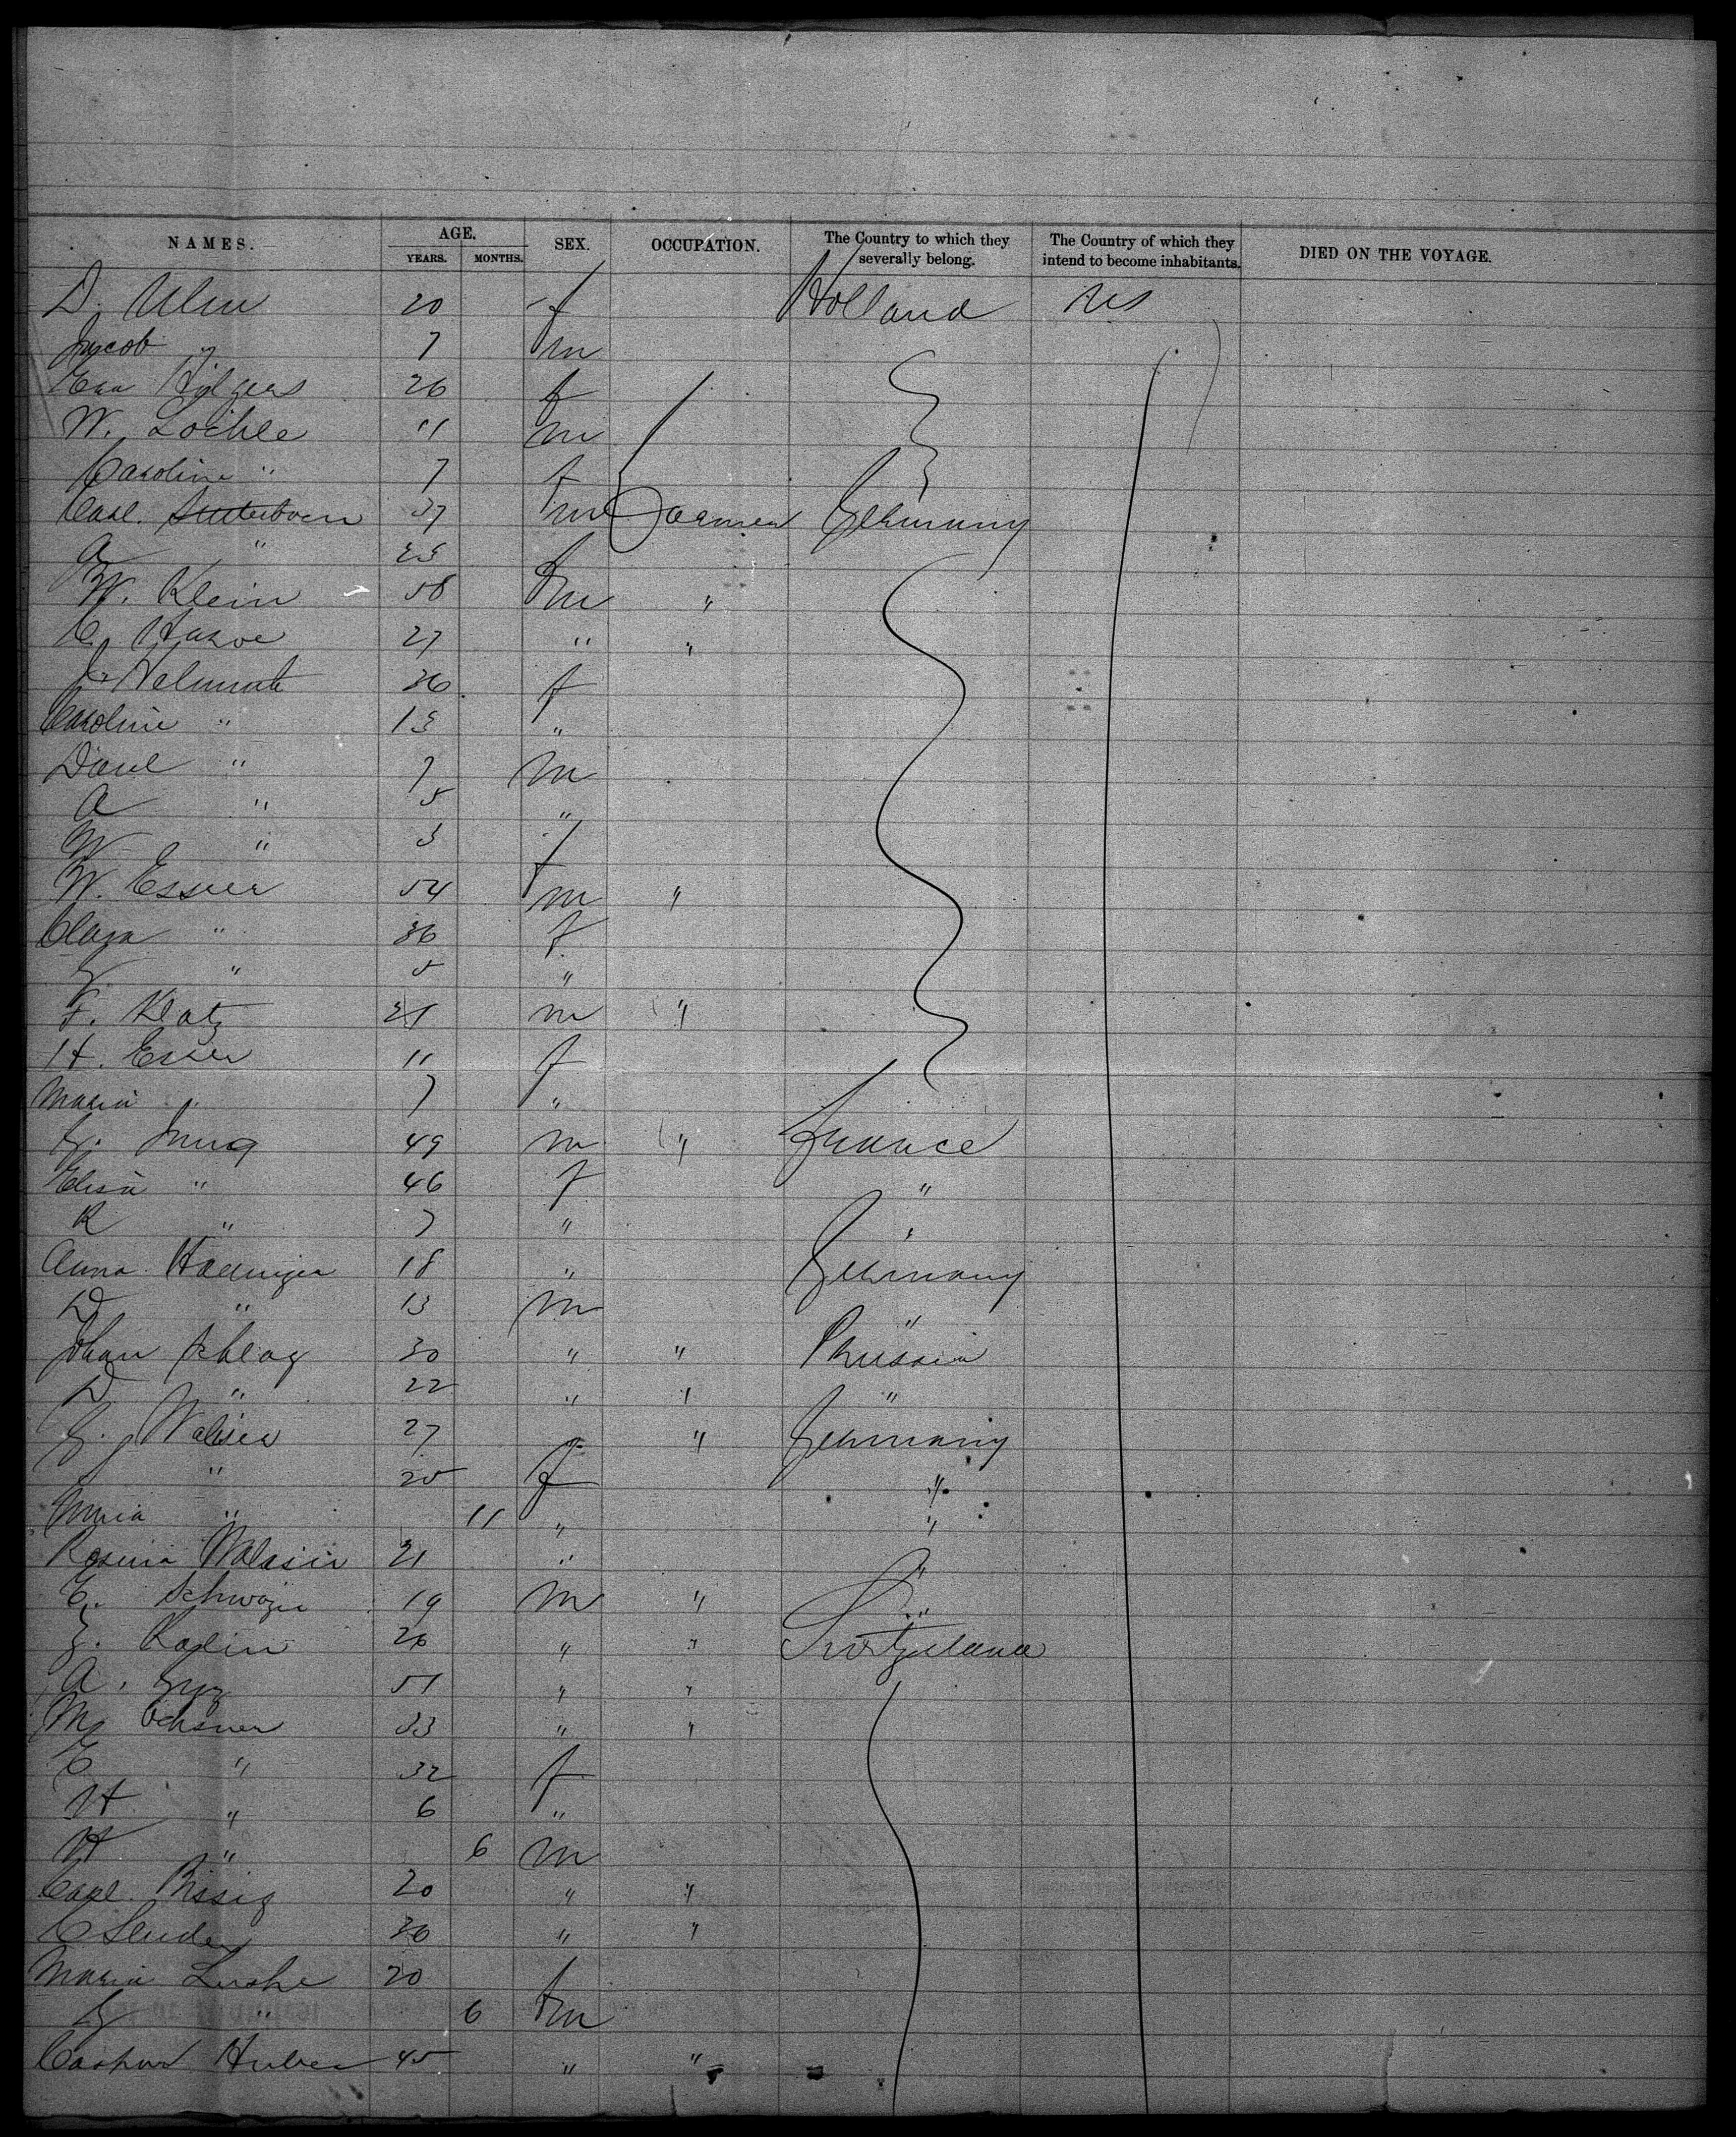 NAMES. AGE. SEX. OCCUPATION. The Country to which they severally belong. The Country of which they intend to become inhabitants. DIED ON THE VOYAGE.
YEARS. MONTHS.
D. Ulm 20 f Holland US
Jacob " 7 m
Eva Hilgers 26 f
W. Loehle 11 m
Caroline " 7 f
Carl 37 m Farmer Germany
A " 23 f
W. Klein 58 m "
C. 27 " "
J. 36 f
Caroline " 13 "
" 7 m
A " 5 "
W " 3 f
W. Esser 54 m "
Clara " 36 f
" 5 "
F. Klotz 21 m "
H. Esser 11 f
Maria " 7 "
Jung 49 m " France
Elisa " 46 f "
R " 7 " "
Anna 18 " Germany
D " 13 m "
Johan Schlag 30 " " Prussia
D " 22 " " "
G. Walser 27 " " Germany
" 25 f "
" 11 " "
Rosina 21 " "
E. 19 m " "
26 " " Switzerland
A. 51 " "
M. Ochsner 33 " "
E " 32 f
H " 6 "
H " 6 m
Carl Bissig 20 " "
C 36 " "
Maria 20 f
" 6 m
Caspar Huber 45 " "